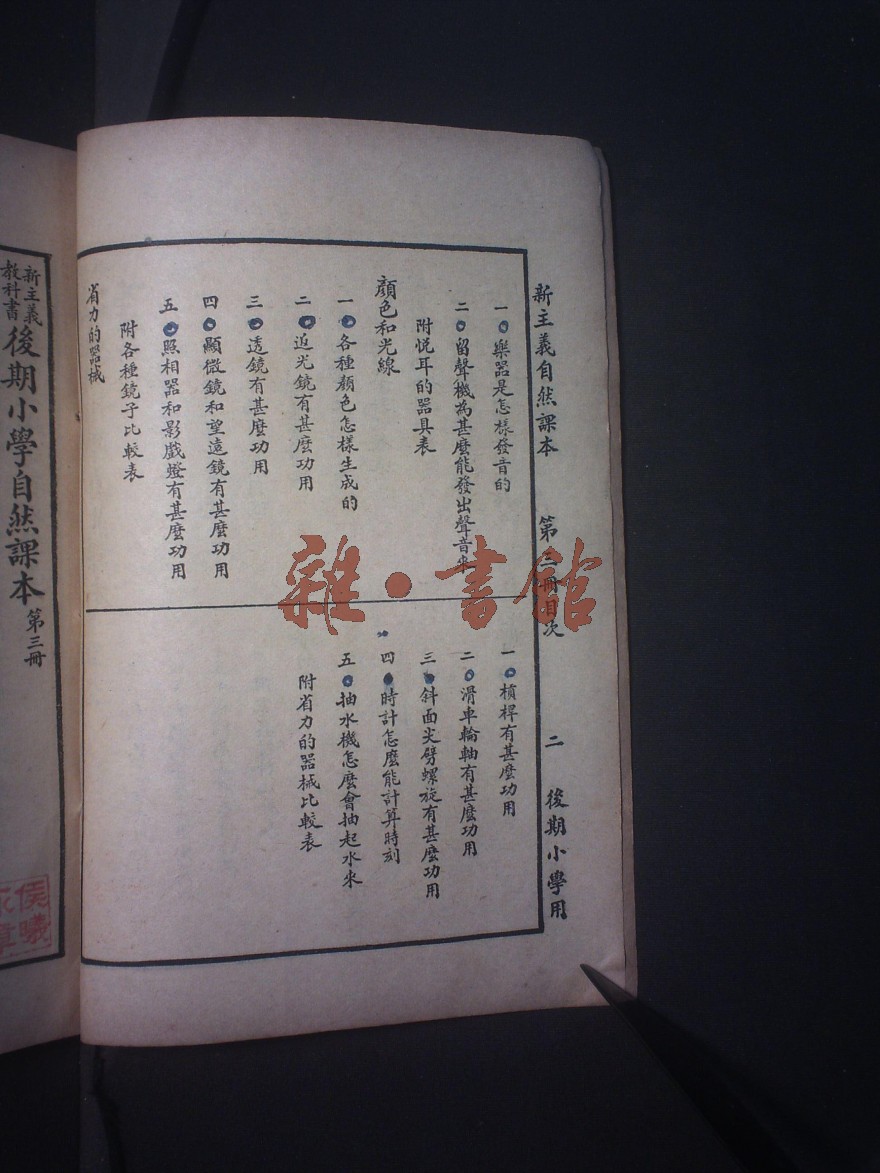 新主義自然課本 第三冊目次 二 後期小學用
一 樂器是怎樣發音的
二 留聲機為甚麼能發出聲音來
附悅耳的器具表
顏色和光線
一 各種顏色怎樣生成的
二 返光鏡有甚麼功用
三 透鏡有甚麼功用
四 顯微鏡和望遠鏡有甚麼功用
五 照相器和影戲燈有甚麼功用
附各種鏡子比較表
省力的器械
一 槓桿有甚麼功用
二 滑車輪軸有甚麼功用
三 斜面尖劈螺旋有甚麼功用
四 時計怎麼能計算時刻
五 抽水機怎麼會抽起水來
附省力的器械比較表
新主義
教科書
後期小學自然課本 第三冊
雜·書館